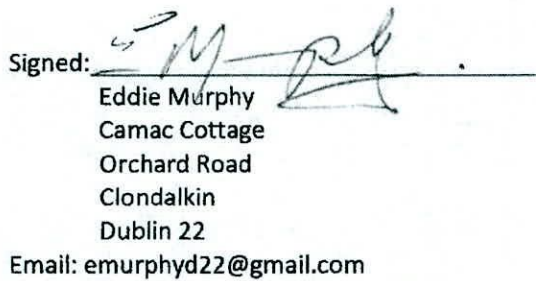 Signed: E Murphy
Eddie Murphy
Camac Cottage
Orchard Road
Clondalkin
Dublin 22
Email: emurphyd22@gmail.com